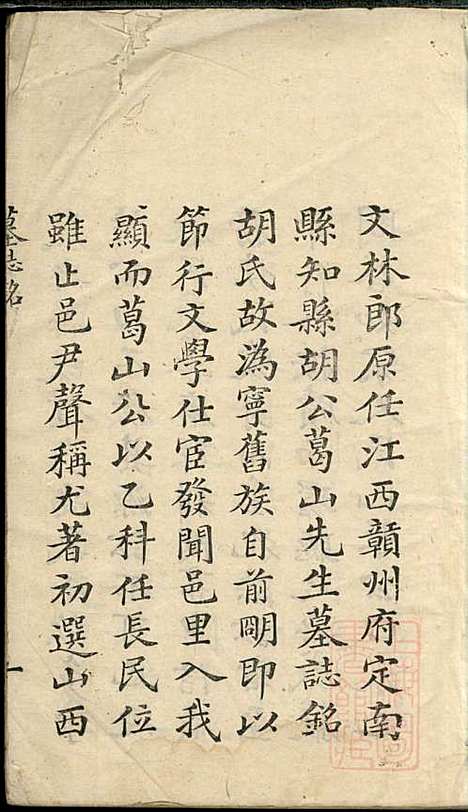 文林郎原任江西贛州府定南
縣知縣胡公葛山先生墓誌銘
胡氏故為寧舊族自前明即以
節行文學仕宦發聞邑里入我
顯而葛山公以乙科任長民位
雖止邑尹聲稱尤著初選山西
墓誌銘
一